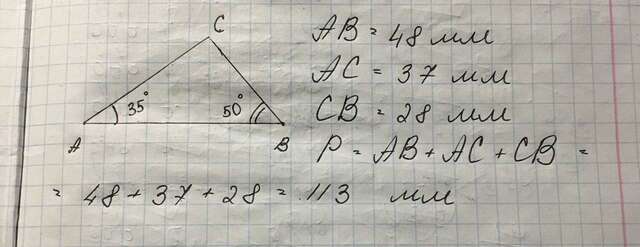 C
AB = 48 мм
AC = 37 мм
35° 50° CB = 28 мм
A B P = AB + AC + CB =
= 48 + 37 + 28 = 113 мм